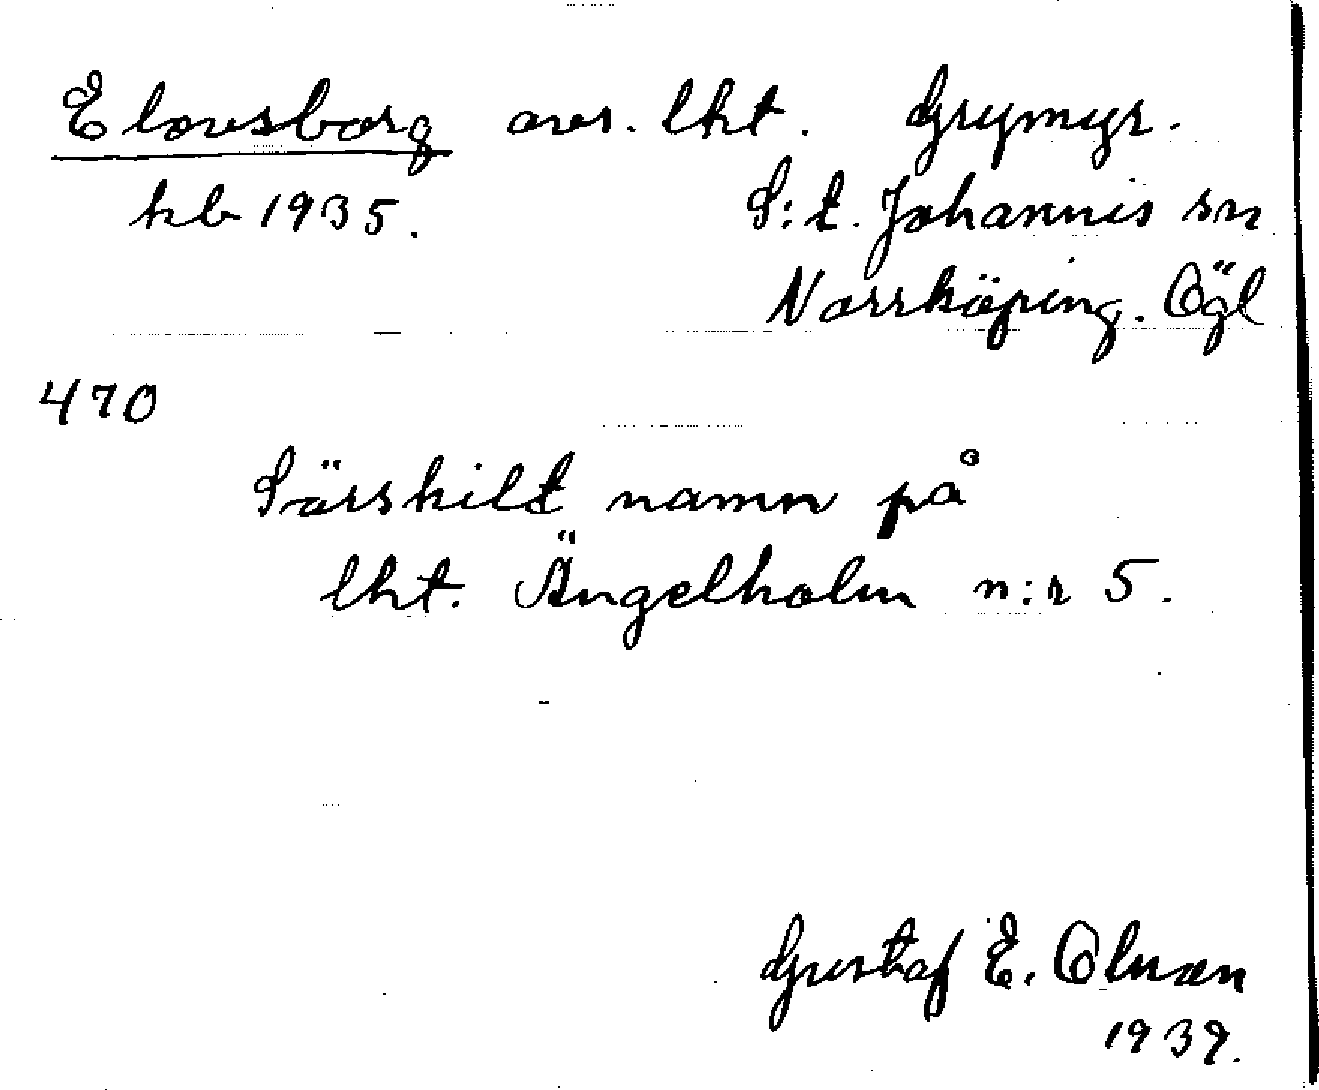 Elovsborg avs. lht. Grymyr.
kb 1935. S:t. Johannis sn
Norrköping. Ögl
470
Särskilt namn på
lht. Ängelholm n:r 5.
Gustaf E. Olsson
1939.